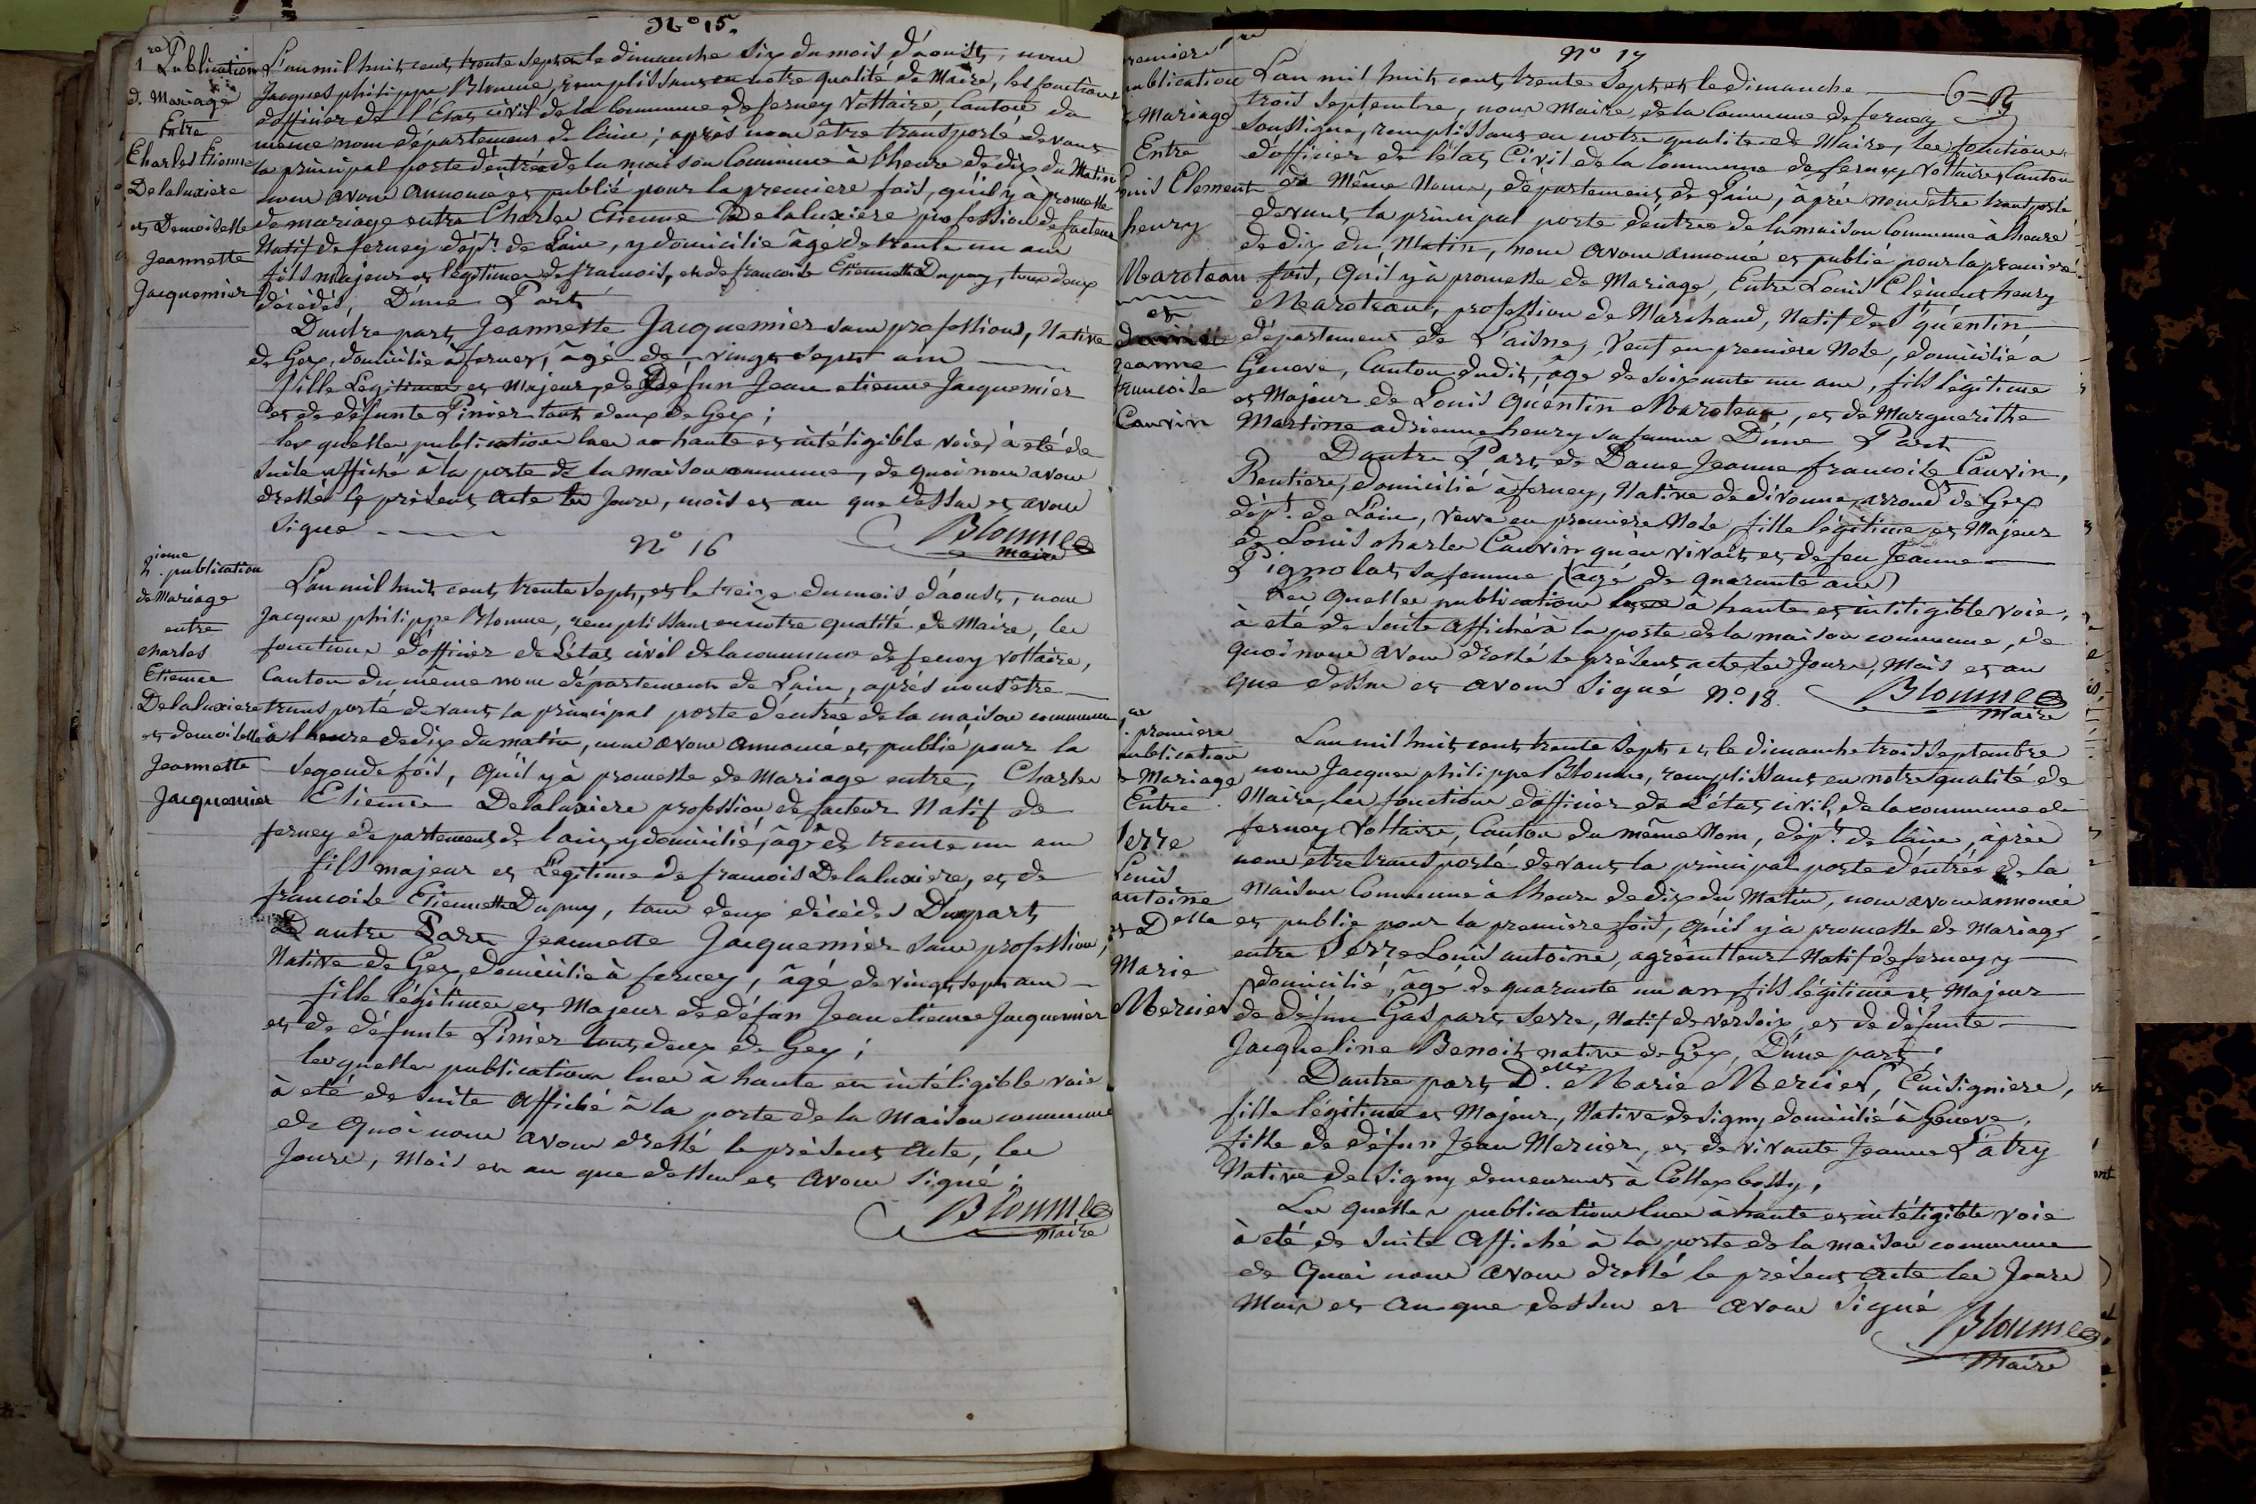 N° 15.
1re Publication
d. Mariage
Entre
Charles Etienne
Delaluxiere
et Demoiselle
Jeannette
Jacquemier
L'an mil huit cent trente sept et le dimanche six du mois d'aoust, nous
Jacques philippe Blonme, remplissant en notre qualité de Maire, les fonctions
d'officier de l'Etat civil de la Commune de ferney Voltaire, Canton du
même nom département de lain; après nous être transporté devant
la principal porte d'entrée de la maison Commune à l'heure de dix du Matin
nous avons annoncé et publié pour la premiere fois, qu'il y à promesse
de mariage entre Charles Etienne Delaluxière profession de facteur
Natif de ferney dépt de Lain, y domicilié âgé de trente un ans
fils majeur et légitime de francois, et de francoise Etiennette Dupuy, tous deux
décédés, D'une Part
Dautre part Jeannette Jacquemier sans profession, Native
de Gex, domicilié à ferney, âgé de vingt sept ans
fille Légitime et Majeur, de Défun Jean etienne Jacquemier
et de défunte Pinier tous deux de Gex;
les quelles publication lues a haute et intéligible voie, à eté de
suite affiché à la porte de la maison commune, de quoi nous avons
dressé le présent acte les Jours, mois et an que dessus et avons
signé
Blonme
maire
N° 16
2ieme publication
de Mariage
entre
charles
Etienne
Delaluxiere
et demoiselle
Jeannette
Jacquemier
L'an mil huit cent trente sept, et le treize du mois d'aoust, nous
Jacques philippe Blonme, remplissant en notre qualité de Maire, les
fonctions d'officier de L'état civil de la commune de ferney Voltaire,
Canton du même nom département de Lain, aprés nous être
transporté devant la principal porte d'entrée de la maison commune
à l'heure de dix du matin, nous avons annoncé et publié pour la
segonde fois, qu'il y à promesse de Mariage entre, Charles
Etienne Delaluxiere profession de facteur Natif de
ferney département de l'ain, y domicilié, âgé de trente un ans
fils majeur et Légitime de francois Delaluxière, et de
francoise Etiennette Dupuy, tous deux décédés D'une part
D'autre Part Jeannette Jacquemier sans profession,
Native de Gex, domicilié à ferney, âgé de vingt sept ans
fille légitime et Majeur de défun Jean etienne Jacquemier
et de défunte Pinier tous deux de Gex;
les quelles publication lues à haute et intéligible voie
à eté de suite affiché à la porte de la Maison commune
de quoi nous avons dressé le présent acte, les
Jours, Mois et an que dessus et avons signé.
Blonme
Maire
N° 17
premiere
publication
Mariage
Entre
Louis Clement
henry
Maroteau
et
Jeanne
francoise
Cauvin
L'an mil huit cent trente Sept et le dimanche
trois Septembre, nous Maire, de la Commune de ferney
soussigné, remplissant en notre qualité de Maire, les fonctions
d'officier de l'état Civil de la Commune de ferney Voltaire, Canton
du Même Nom, département de Lain, aprés nous être transporté
devant la principal porte d'entrée de la maison Commune à l'heure
de dix du Matin, nous avons annoncé et publié pour la première
fois, qu'il y à promesse de Mariage, Entre Louis Clément henry
Maroteau, profession de Marchand, Natif de St quentin
département de L'aisne, Veuf en première Nose, domicilié a
Geneve, Canton dudit, âgé de soixante un ans, fils légitime
et Majeur de Louis Quentin Maroteau, et de Marguerithe
Martine adrienne henry sa femme D'une Part
Dautre Part de Dame Jeanne francoise Cauvin,
Rentiere, domicilié à ferney, Native de divonne, arrondt de Gex
dépt de Lain, Veuve en première Nose, fille légitime et Majeur
de Louis charles Cauvin qu'en vivait et de feu Jeanne
Pignolat sa femme (agé de quarante ans)
Les quelles publication lues à haute et intéligible voie,
à eté de suite affiché à la porte de la maison commune, de
quoi nous avons dressé le présent acte, les Jours, Mois et an
que dessus et avons signé
Blonme
Maire
N° 18.
1. premiere
publication
Mariage
Entre
Serre
Louis
antoine
et Delle
Marie
Mercier
L'an mil huit cent trente Sept et le dimanche trois septembre
nous Jacques philippe Blonme, remplissant en notre qualité de
Maire, les fonctions d'officier de L'état civil, de la commune de
ferney Voltaire, Canton du même Nom, dépt de lain, après
nous être transporté devant la principal porte d'entrée de la
maison Commune à l'heure de dix du Matin, nous avons annoncé
et publié pour la première fois, qu'il y à promesse de Mariage
entre Serre Louis antoine, agriculteur Natif de ferney y
domicilié, âgé de quarante un an, fils légitime et Majeur
de défun Gaspart Serre, Natif de versoix, et de défunte
Jacqueline Benoit native de Gex, D'une part,
Dautre part, Delle Marie Mercier, Cuisignière,
fille légitime et Majeur, Native de Signy domicilié à Geneve,
fille de défun Jean Mercier, et de vivante Jeanne Patry
Native de Signy demeurant à Collex bossy,
Les quelles publication lues à haute et intéligible voie
à eté de suite affiché à la porte de la maison commune
de quoi nous avons dressé le présent acte les Jours
Mois et an que dessus et avons signé
Blonme
Maire